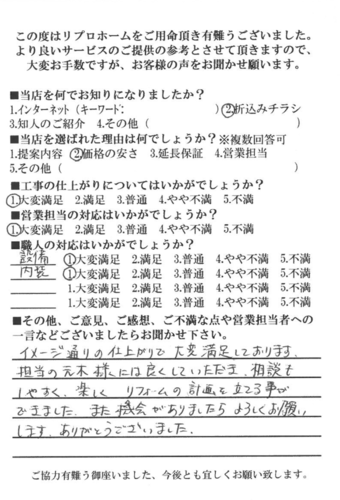 この度はリプロホームをご用命頂き有難うございました。
より良いサービスのご提供の参考とさせて頂きますので、
大変お手数ですが、お客様の声をお聞かせ願います。
■当店を何でお知りになりましたか?
1.インターネット (キーワード: ) ②折込みチラシ
3.知人のご紹介 4.その他 ( )
■当店を選ばれた理由は何でしょうか?※複数回答可
1.提案内容 ②価格の安さ 3.延長保証 4.営業担当
5.その他 ( )
■工事の仕上がりについてはいかがでしょうか?
①大変満足 2.満足 3.普通 4.やや不満 5.不満
■営業担当の対応はいかがでしょうか?
①大変満足 2.満足 3.普通 4.やや不満 5.不満
■職人の対応はいかがでしょうか?
設備 ①大変満足 2.満足 3.普通 4.やや不満 5.不満
内装 ①大変満足 2.満足 3.普通 4.やや不満 5.不満
1.大変満足 2.満足 3.普通 4.やや不満 5.不満
1.大変満足 2.満足 3.普通 4.やや不満 5.不満
■その他、ご意見、ご感想、ご不満な点や営業担当者への
一言などございましたらお聞かせ下さい。
イメージ通りの仕上がりで大変満足しております。
担当の元木様には良くしていただき、相談も
しやすく、楽しく リフォームの計画を立てる事が
できました。また機会がありましたらよろしくお願い
します。ありがとうございました。
ご協力有難う御座いました、今後とも宜しくお願い致します。